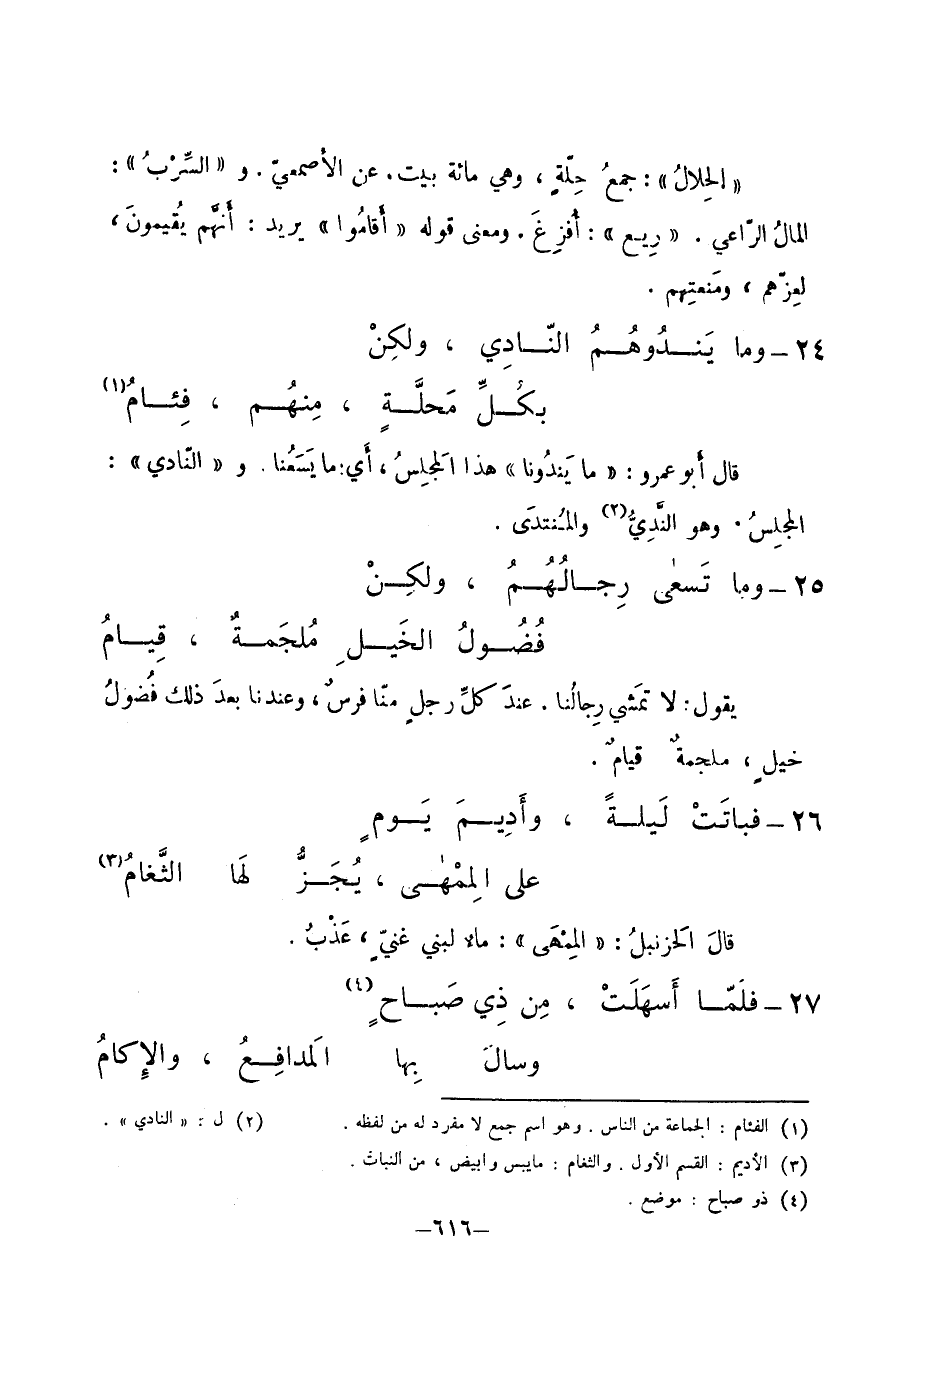 « الحِلالُ » : جمعُ حِلّةٍ ، وهي مائة بيت . عن الأصمعيّ . و « السِّرْبُ » :
المالُ الرّاعي . « رِيع » : أُفزِعَ . ومعنى قوله « أقامُوا » يريد : أنَّهم يُقيمونَ ،
لعِزّهم ، ومَنعتِهم .
٢٤ ــ وما يَنــدُوهُــمُ النّــادِي ، ولكِنْ
بكُــلِّ مَحلَّــةٍ ، مِنهُــم ، فِئــامُ(١)
قال أبو عمرو : « ما يَندُونا » هذا المَجلِسُ ، أي : ما يَسَعُنا . و « النّادي » :
المجلِسُ . وهو النَّدِيُّ(٢) والمُنتدَى .
٢٥ ــ وما تَسعٰى رِجــالُهُــمُ ، ولكِــنْ
فُضُــولُ الخَيــلِ مُلجَمــةٌ ، قِيــامُ
يقول : لا تمَشي رِجالُنا . عندَ كلِّ رجلٍ منّا فرسٌ ، وعندنا بعدَ ذلك فُضولُ
خيلٍ ، ملجمةٌ قيامٌ .
٢٦ ــ فباتَتْ لَيلــةً ، وأَدِيــمَ يَــومٍ
على المِمْهٰــى ، يُجَــزُّ لَها الثَّغامُ(٣)
قالَ الحَزنبلُ : « المِمْهَى » : ماء لبني غنيّ ، عَذْبُ .
٢٧ ــ فلَمّــا أَسهَلَتْ ، مِن ذِي صَبــاحٍ(٤)
وسالَ بِها المَدافِــعُ ، والإكامُ
(١) الفئام : الجماعة من الناس . وهو اسم جمع لا مفرد له من لفظه . (٢) ل : « النادي » .
(٣) الأديم : القسم الأول . والثغام : مايبس وابيض ، من النبات .
(٤) ذو صباح : موضع .
ــ٦١٦ــ